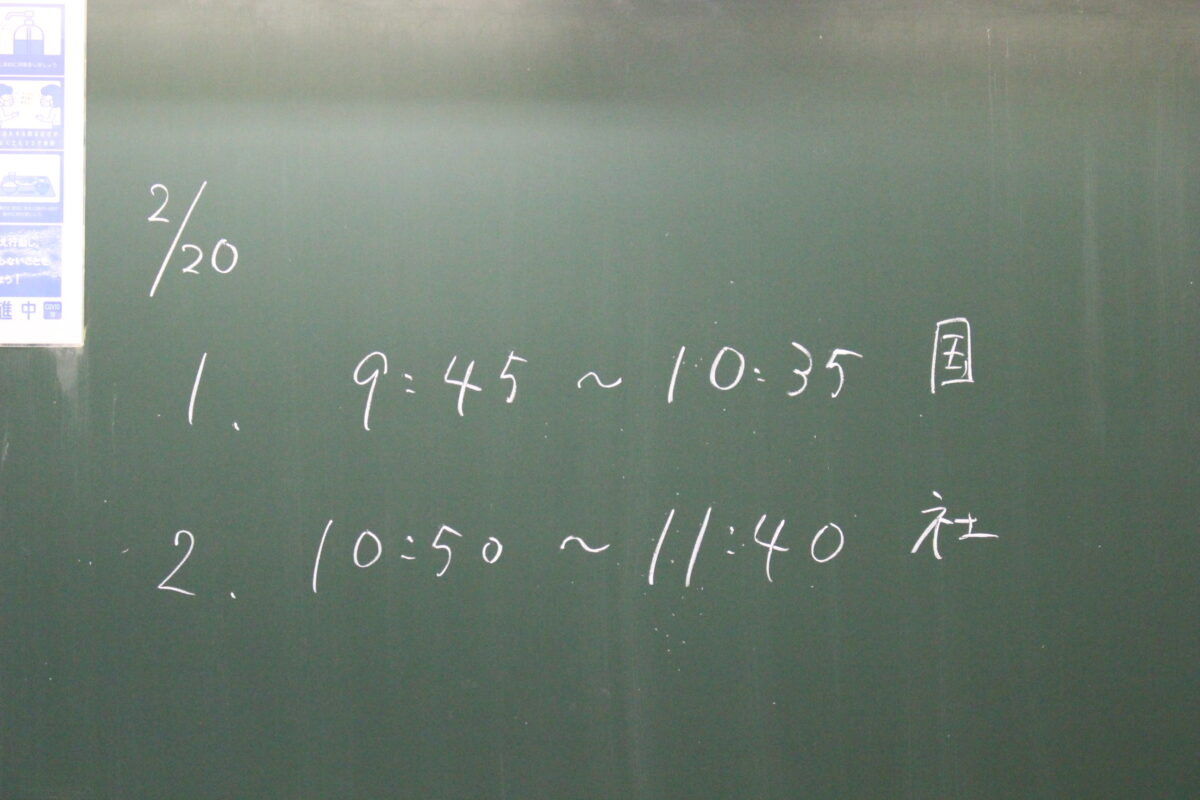 2/20
1. 9:45 ~ 10:35 国
2. 10:50 ~ 11:40 社
え行動し、
らないことを
よう!
進中
COVID